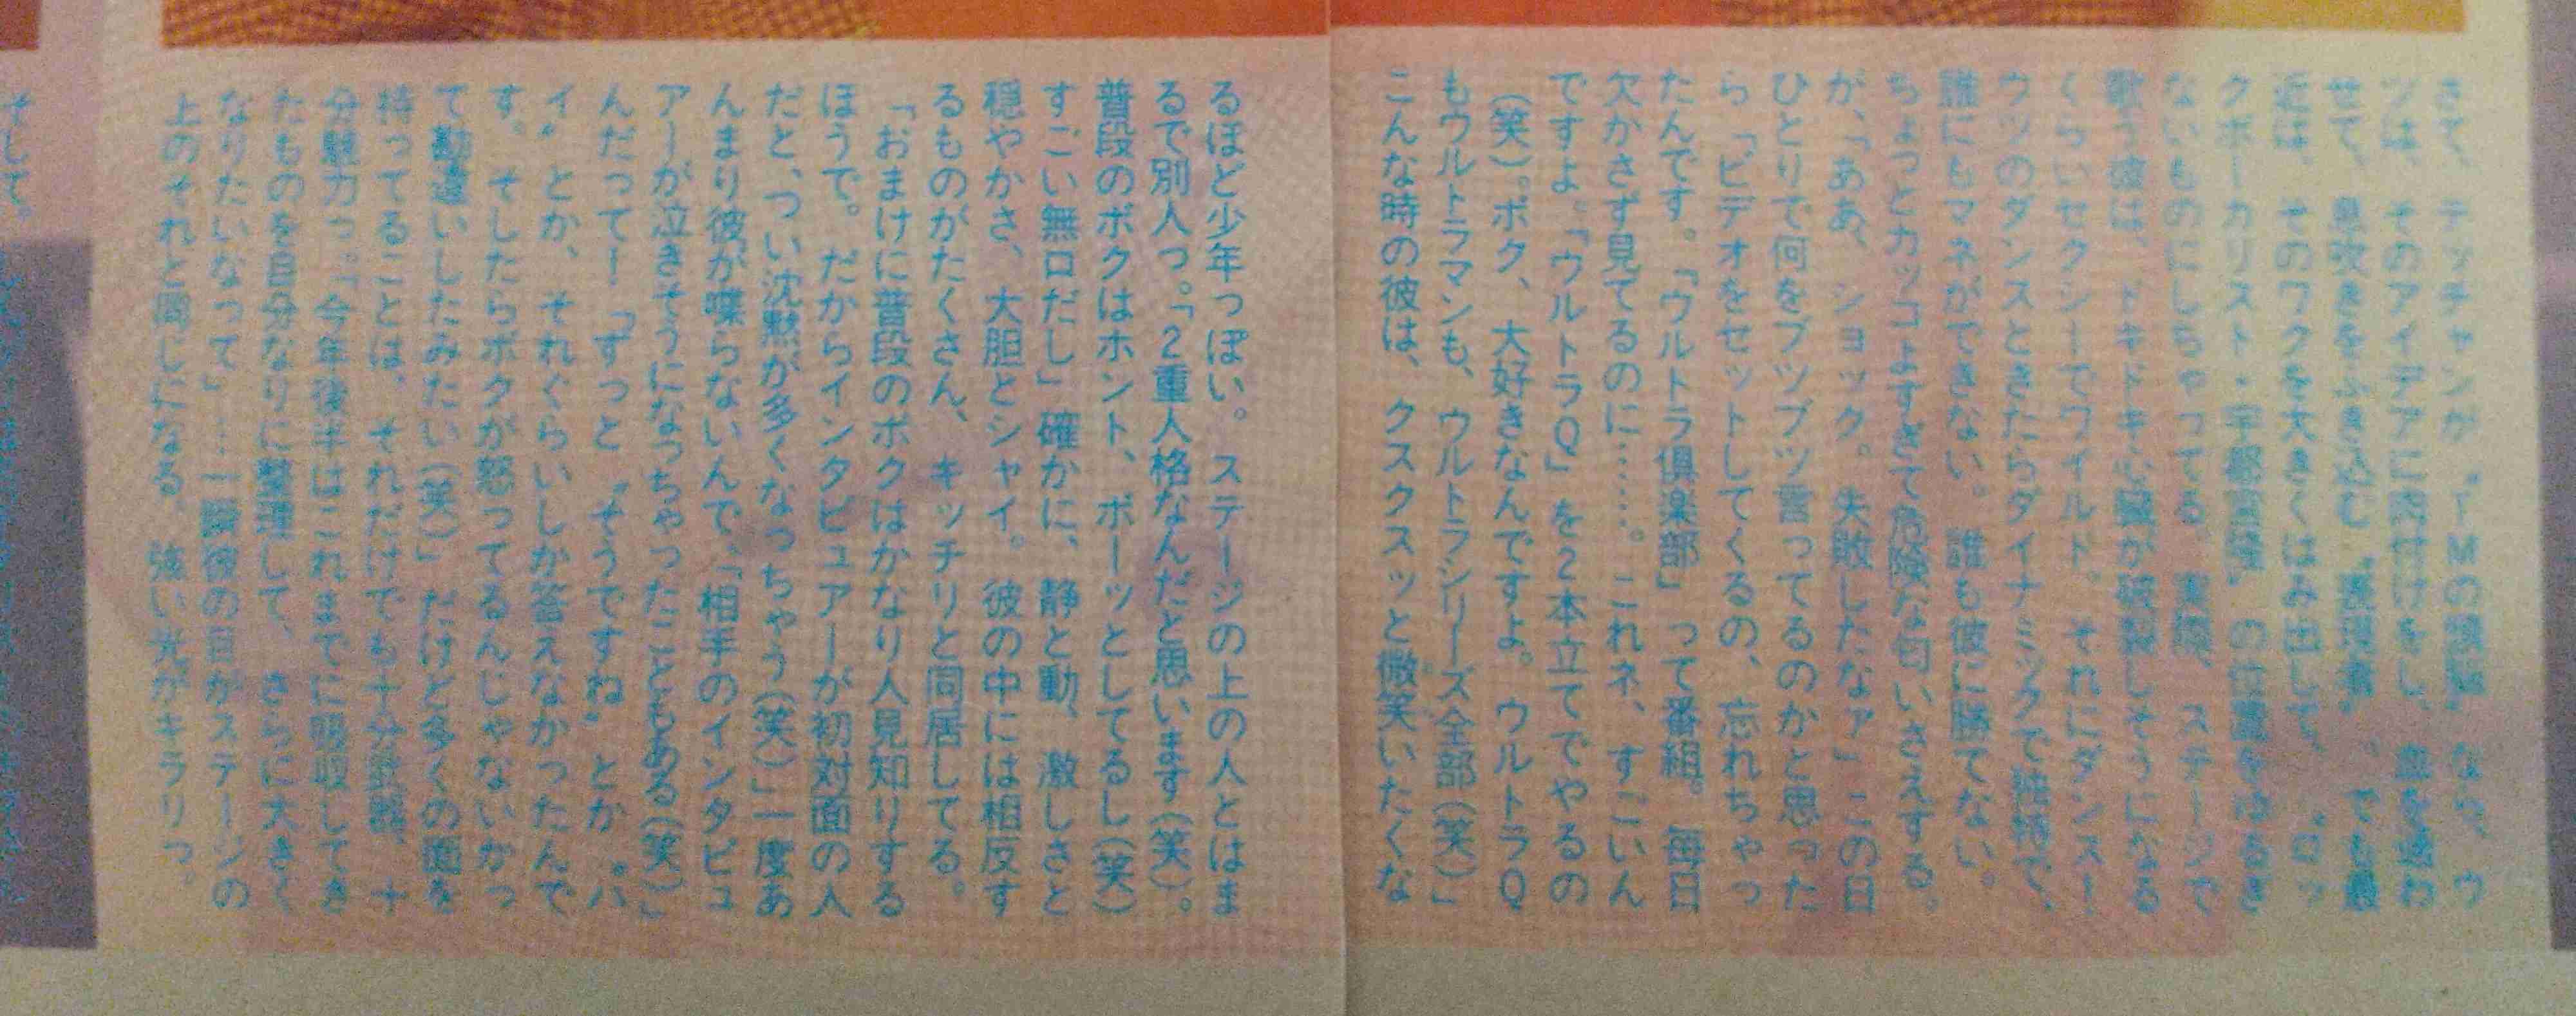 さて、テッチャンが〝TMの頭脳〟なら、ウ
ツは、そのアイデアに肉付けをし、血を通わ
せて、息吹きをふき込む〝表現者〟。でも最
近は、そのワクを大きくはみ出して、〝ロッ
クボーカリスト・宇都宮隆〟の位置をゆるぎ
ないものにしちゃってる。実際、ステージで
歌う彼は、ドキドキ心臓が破裂しそうになる
くらいセクシーでワイルド。それにダンス!
ウツのダンスときたらダイナミックで独特で、
誰にもマネができない。誰も彼に勝てない。
ちょっとカッコよすぎて危険な匂いさえする。
が、「ああ、ショック。失敗したなァ」この日
ひとりで何をブツブツ言ってるのかと思った
ら「ビデオをセットしてくるの、忘れちゃっ
たんです。「ウルトラ倶楽部」って番組。毎日
欠かさず見てるのに……。これネ、すごいん
ですよ。「ウルトラQ」を2本立てでやるの
(笑)。ボク、大好きなんですよ。ウルトラQ
もウルトラマンも、ウルトラシリーズ全部(笑)」
こんな時の彼は、クスクスッと微笑いたくな
るほど少年っぽい。ステージの上の人とはま
るで別人っ。「2重人格なんだと思います(笑)。
普段のボクはホント、ボーッとしてるし(笑)
すごい無口だし」確かに、静と動、激しさと
穏やかさ、大胆とシャイ。彼の中には相反す
るものがたくさん、キッチリと同居してる。
「おまけに普段のボクはかなり人見知りする
ほうで。だからインタビュアーが初対面の人
だと、つい沈黙が多くなっちゃう(笑)」一度あ
んまり彼が喋らないんで、「相手のインタビュ
アーが泣きそうになっちゃったこともある(笑)」
んだって!「ずっと〝そうですね〟とか〝ハ
イ〟とか、それぐらいしか答えなかったんで
す。そしたらボクが怒ってるんじゃないかっ
て勘違いしたみたい(笑)」だけど多くの面を
持ってることは、それだけでも十分武器、十
分魅力っ。「今年後半はこれまでに吸収してき
たものを自分なりに整理して、さらに大きく
なりたいなって」…一瞬彼の目がステージの
上のそれと同じになる。強い光がキラリっ。
そして。